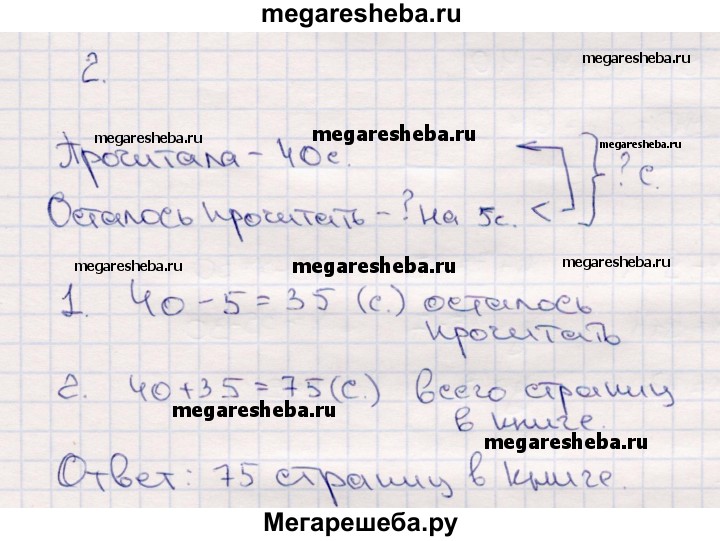 megaresheba.ru
2.
megaresheba.ru
megaresheba.ru
megaresheba.ru
megaresheba.ru
Прочитала – 40 с.
? с.
Осталось прочитать – ? на 5 с. <
megaresheba.ru
megaresheba.ru
megaresheba.ru
1. 40 – 5 = 35 (с.) осталось
прочитать
2. 40 + 35 = 75 (с.) всего страниц
megaresheba.ru
в книге.
megaresheba.ru
Ответ: 75 страниц в книге.
Мегарешеба.ру